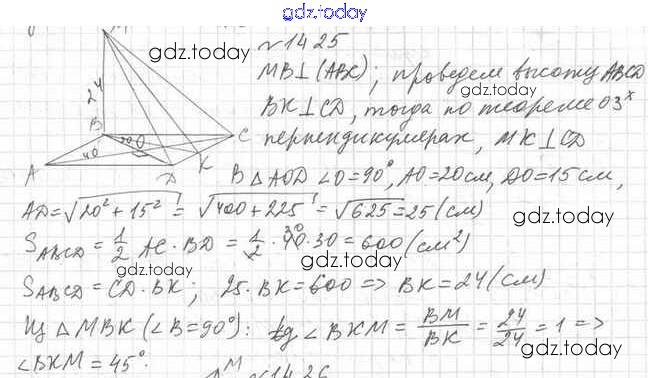 gdz.today
M
gdz.today
№1425
MB⊥(ABC); проведем высоту ABCD
gdz.today
BK⊥CD, тогда по теореме о 3х
перпендикулярах, MK⊥CD
24
B
O
C
A
40
30
K
D
gdz.today
В △AOD ∠O=90°, AO=20см, DO=15см,
AD=√20²+15² = √400+225 = √625=25(см)
gdz.today
S ABCD = 1/2 AC·BD = 1/2·40·30=600(см²)
gdz.today
gdz.today
S ABCD = CD·BK; 25·BK=600 => BK=24(см)
Из △MBK (∠B=90°): tg∠BKM = BM/BK = 24/24 = 1 =>
gdz.today
gdz.today
∠BKM = 45°.
M
№1426